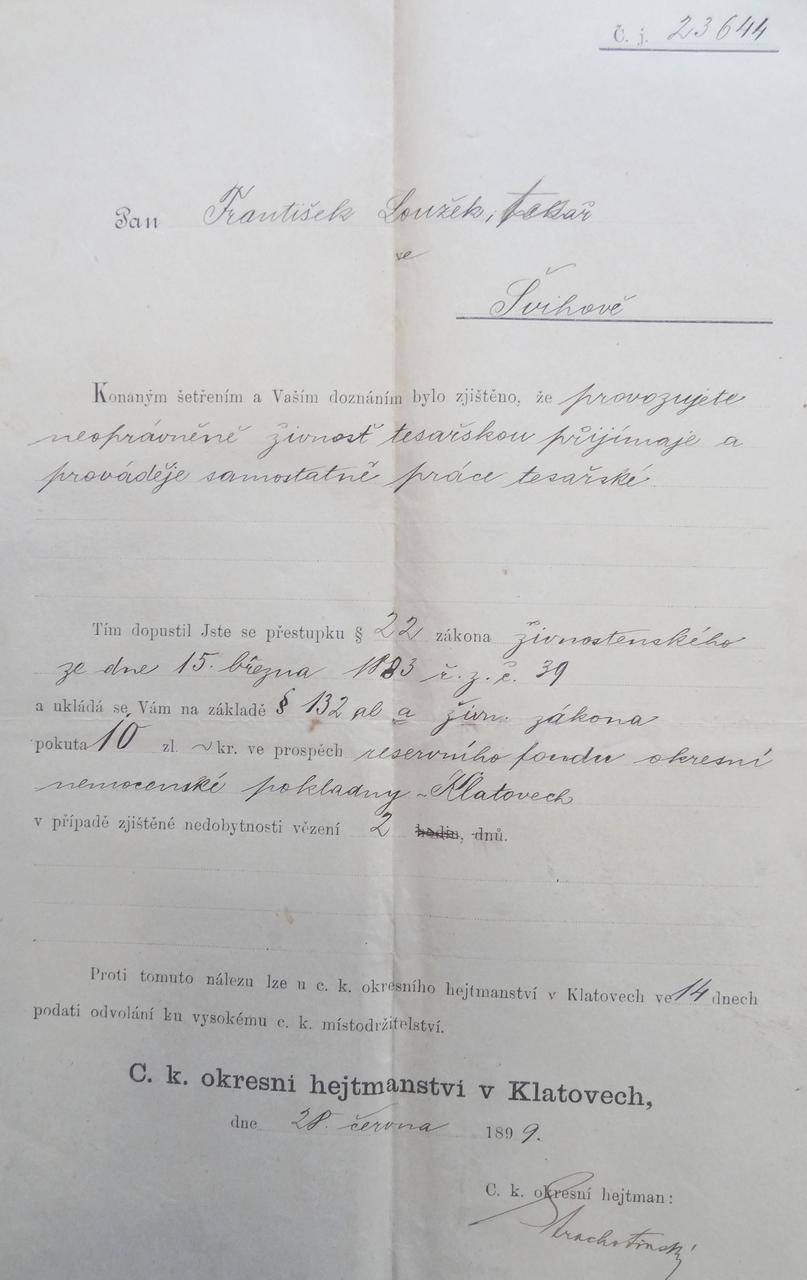 Č. j. 23644
Pan František Loužek,
ve
Švihově
Konaným šetřením a Vaším doznáním bylo zjištěno, že provozujete
neoprávněně živnosť tesařskou přijímaje a
prováděje samostatně práce tesařské
Tím dopustil Jste se přestupku § 22 zákona živnostenského
ze dne 15. března 1883 ř. z. č. 39
a ukládá se Vám na základě § 132 al a živn. zákona
pokuta 10 zl. ~ kr. ve prospěch reservního fondu okresní
nemocenské pokladny - Klatovech
v případě zjištěné nedobytnosti vězení 2 hodin, dnů.
Proti tomuto nálezu lze u c. k. okresního hejtmanství v Klatovech ve 14 dnech
podati odvolání ku vysokému c. k. místodržitelství.
C. k. okresní hejtmanství v Klatovech,
dne 28. června 1899.
C. k. okresní hejtman:
Strachotínský